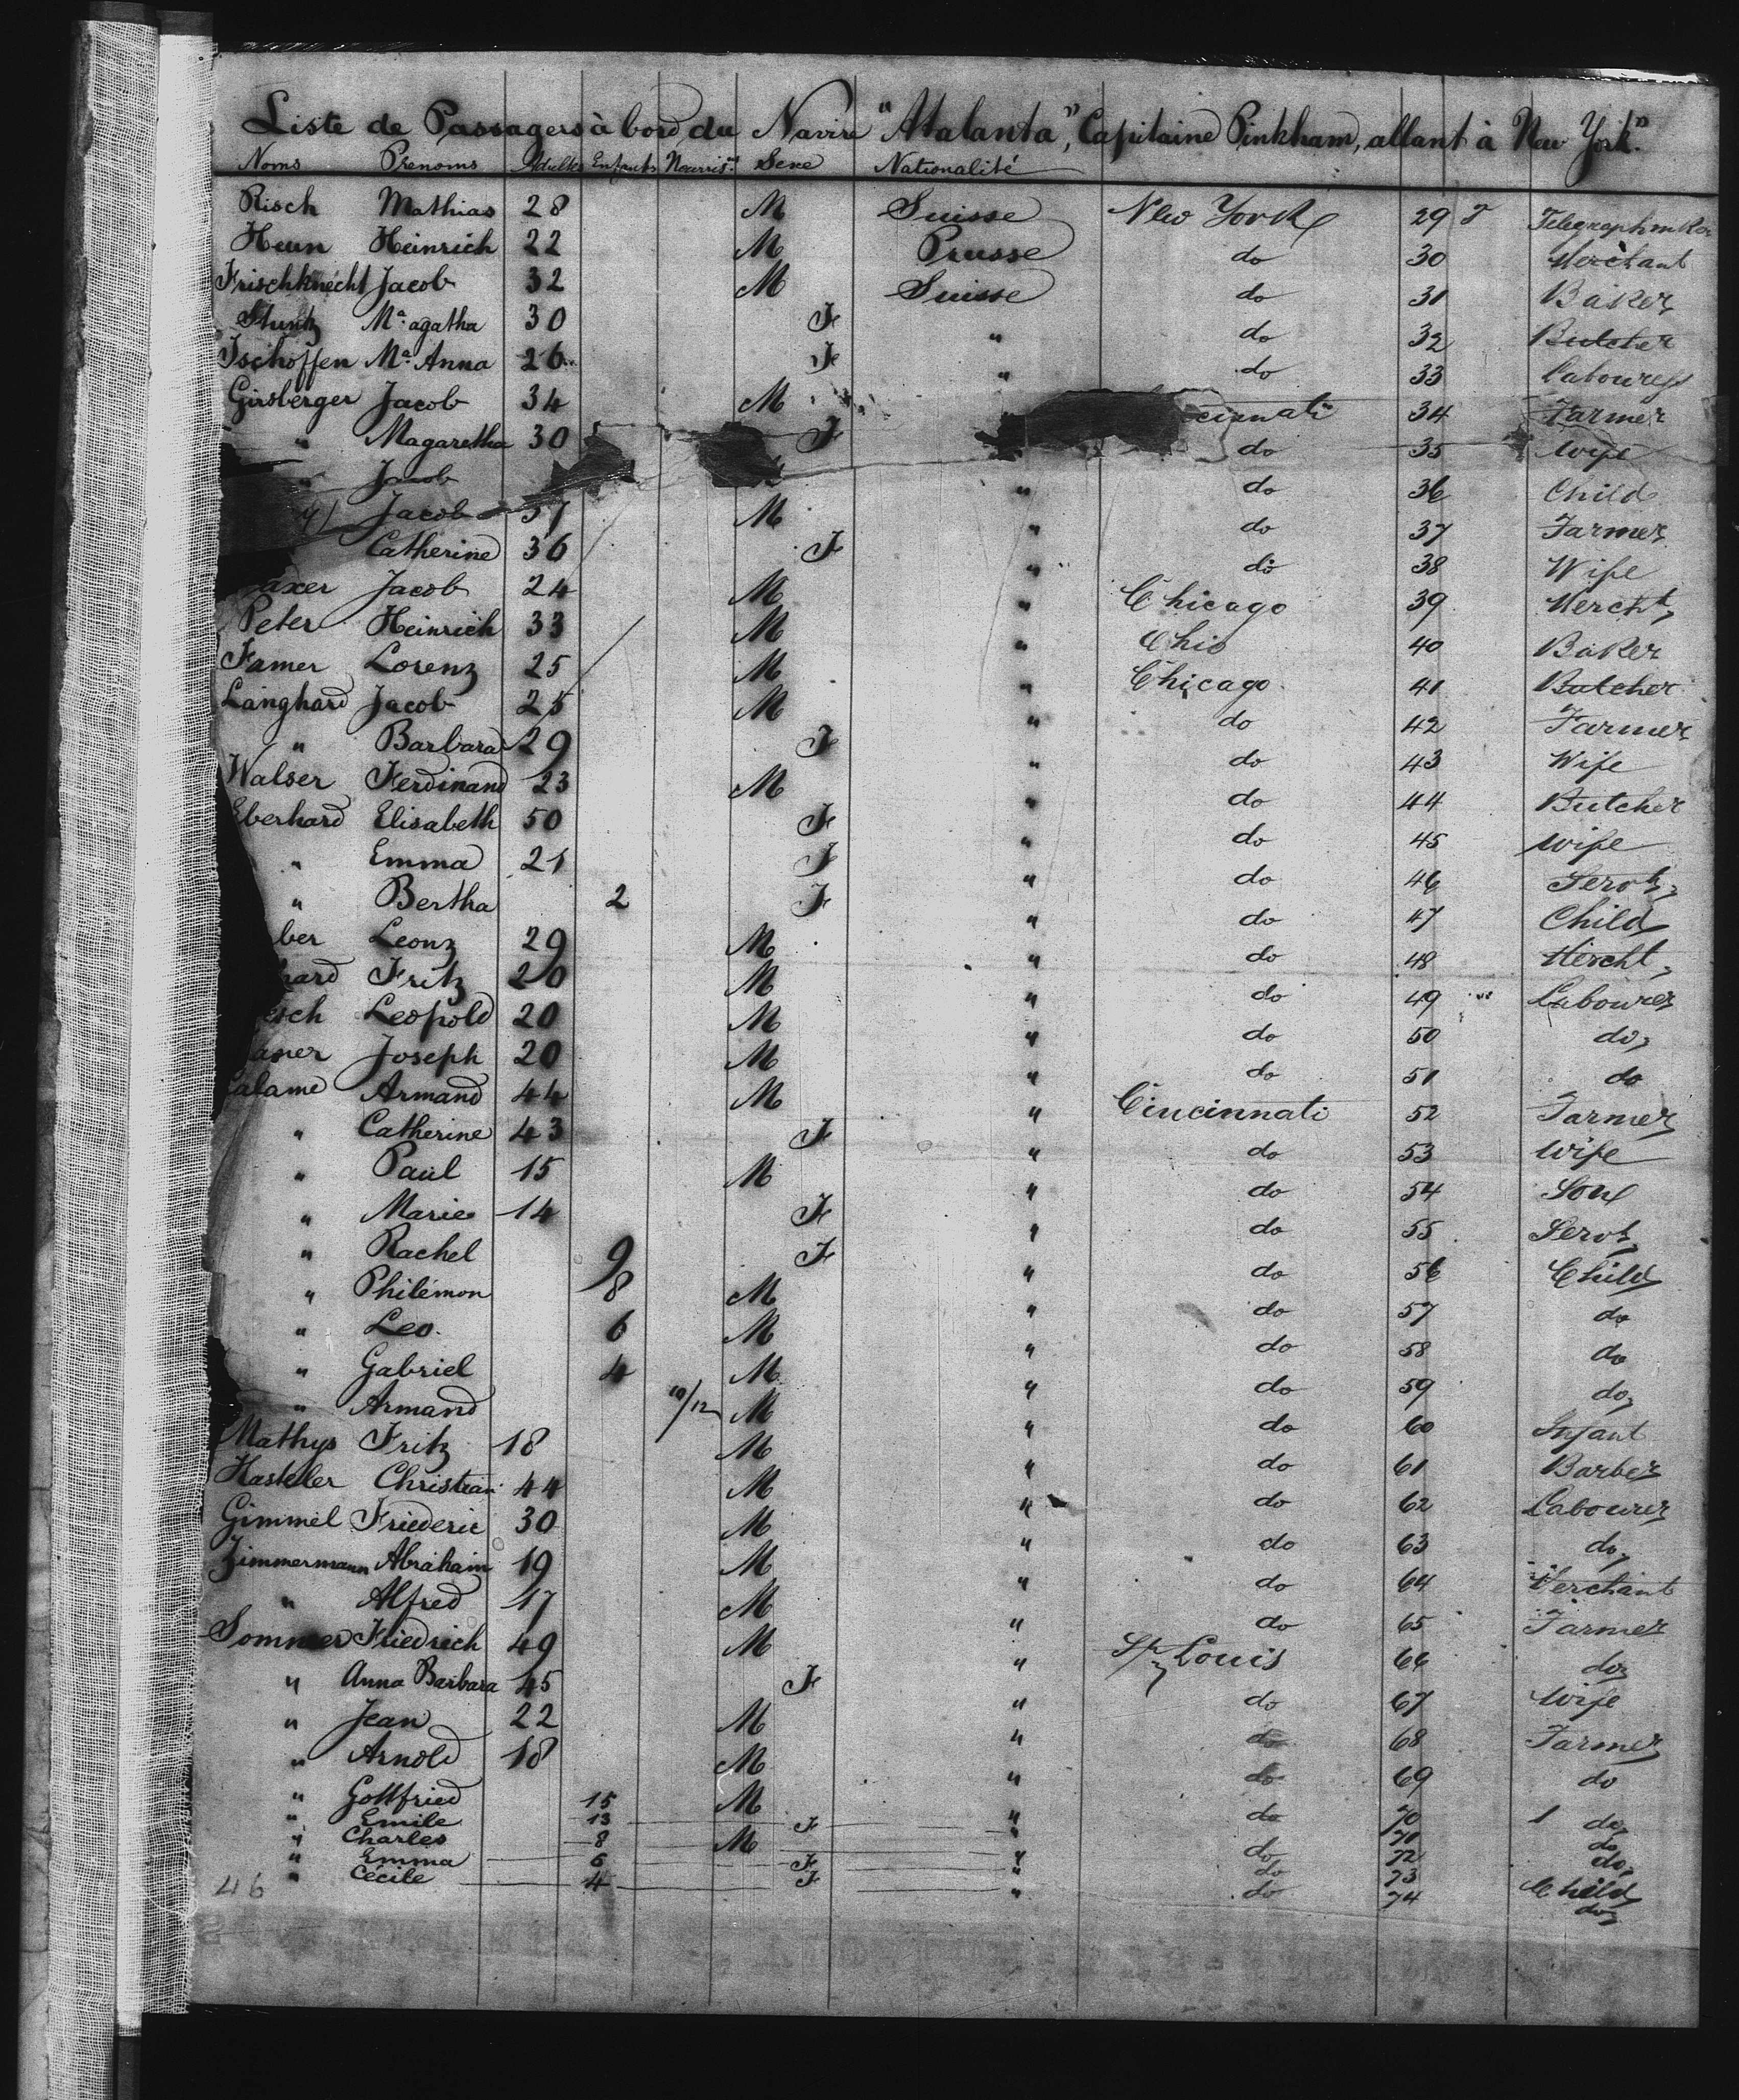 Liste de Passagers à bord du Navire "Atalanta", Capitaine Pinkham, allant à New York."
Noms Prenoms Adultes Enfants Nourris. Sexe Nationalité
Risch Mathias 28 M Suisse New York 29
Heun Heinrich 22 M Prusse do 30 Merchant
Frischknecht Jacob 32 M Suisse do 31 Baker
Stuntz Ma. agatha 30 F " do 32 Butcher
Tschoffen Ma. Anna 26 F " do 33 Labourer
Girsberger Jacob 34 M cinnati 34 Farmer
" Magaretha 30 F do 35 Wife
" Jacob " do 36 Child
Jacob 37 M " do 37 Farmer
Catherine 36 F " do 38 Wife
axer Jacob 24 M " Chicago 39 Mercht,
Peter Heinrich 33 M " Ohio 40 Baker
Famer Lorenz 25 M " Chicago 41 Butcher
Langhard Jacob 25 M " do 42 Farmer
" Barbara 29 F " do 43 Wife
Walser Ferdinand 23 M " do 44 Butcher
Eberhard Elisabeth 50 F " do 45 Wife
" Emma 21 F " do 46 Servt,
" Bertha 2 F " do 47 Child
ber Leonz 29 M " do 48 Mercht,
hard Fritz 20 M " do 49 Labourer
esch Leopold 20 M " do 50 do,
aner Joseph 20 M " do 51 do
alame Armand 44 M " Cincinnati 52 Farmer
" Catherine 43 F " do 53 Wife
" Paul 15 M " do 54 Son
" Marie 14 F " do 55 Servt,
" Rachel 9 F " do 56 Child
" Philémon 8 M " do 57 do
" Leo. 6 M " do 58 do
" Gabriel 4 M " do 59 do,
" Armand 10/12 M " do 60 Infant
Mathys Fritz 18 M " do 61 Barber
Christian 44 M " do 62 Labourer
Gimmel Friederic 30 M " do 63 do,
Zimmermann Abraham 19 M " do 64 Merchant
" Alfred 17 M " do 65 Farmer
Sommer Friedrich 49 M " St, Louis 66 do,
" Anna Barbara 45 F " do 67 Wife
" Jean 22 M " do 68 Farmer
" Arnold 18 M " do 69 do
" Gottfried 15 M " do 70 do,
" Emile 13 F " 71 do
" Charles 8 M " do 72 do,
" Emma 6 F " do 73 Child
46 " Cécile 4 F " do 74 do,